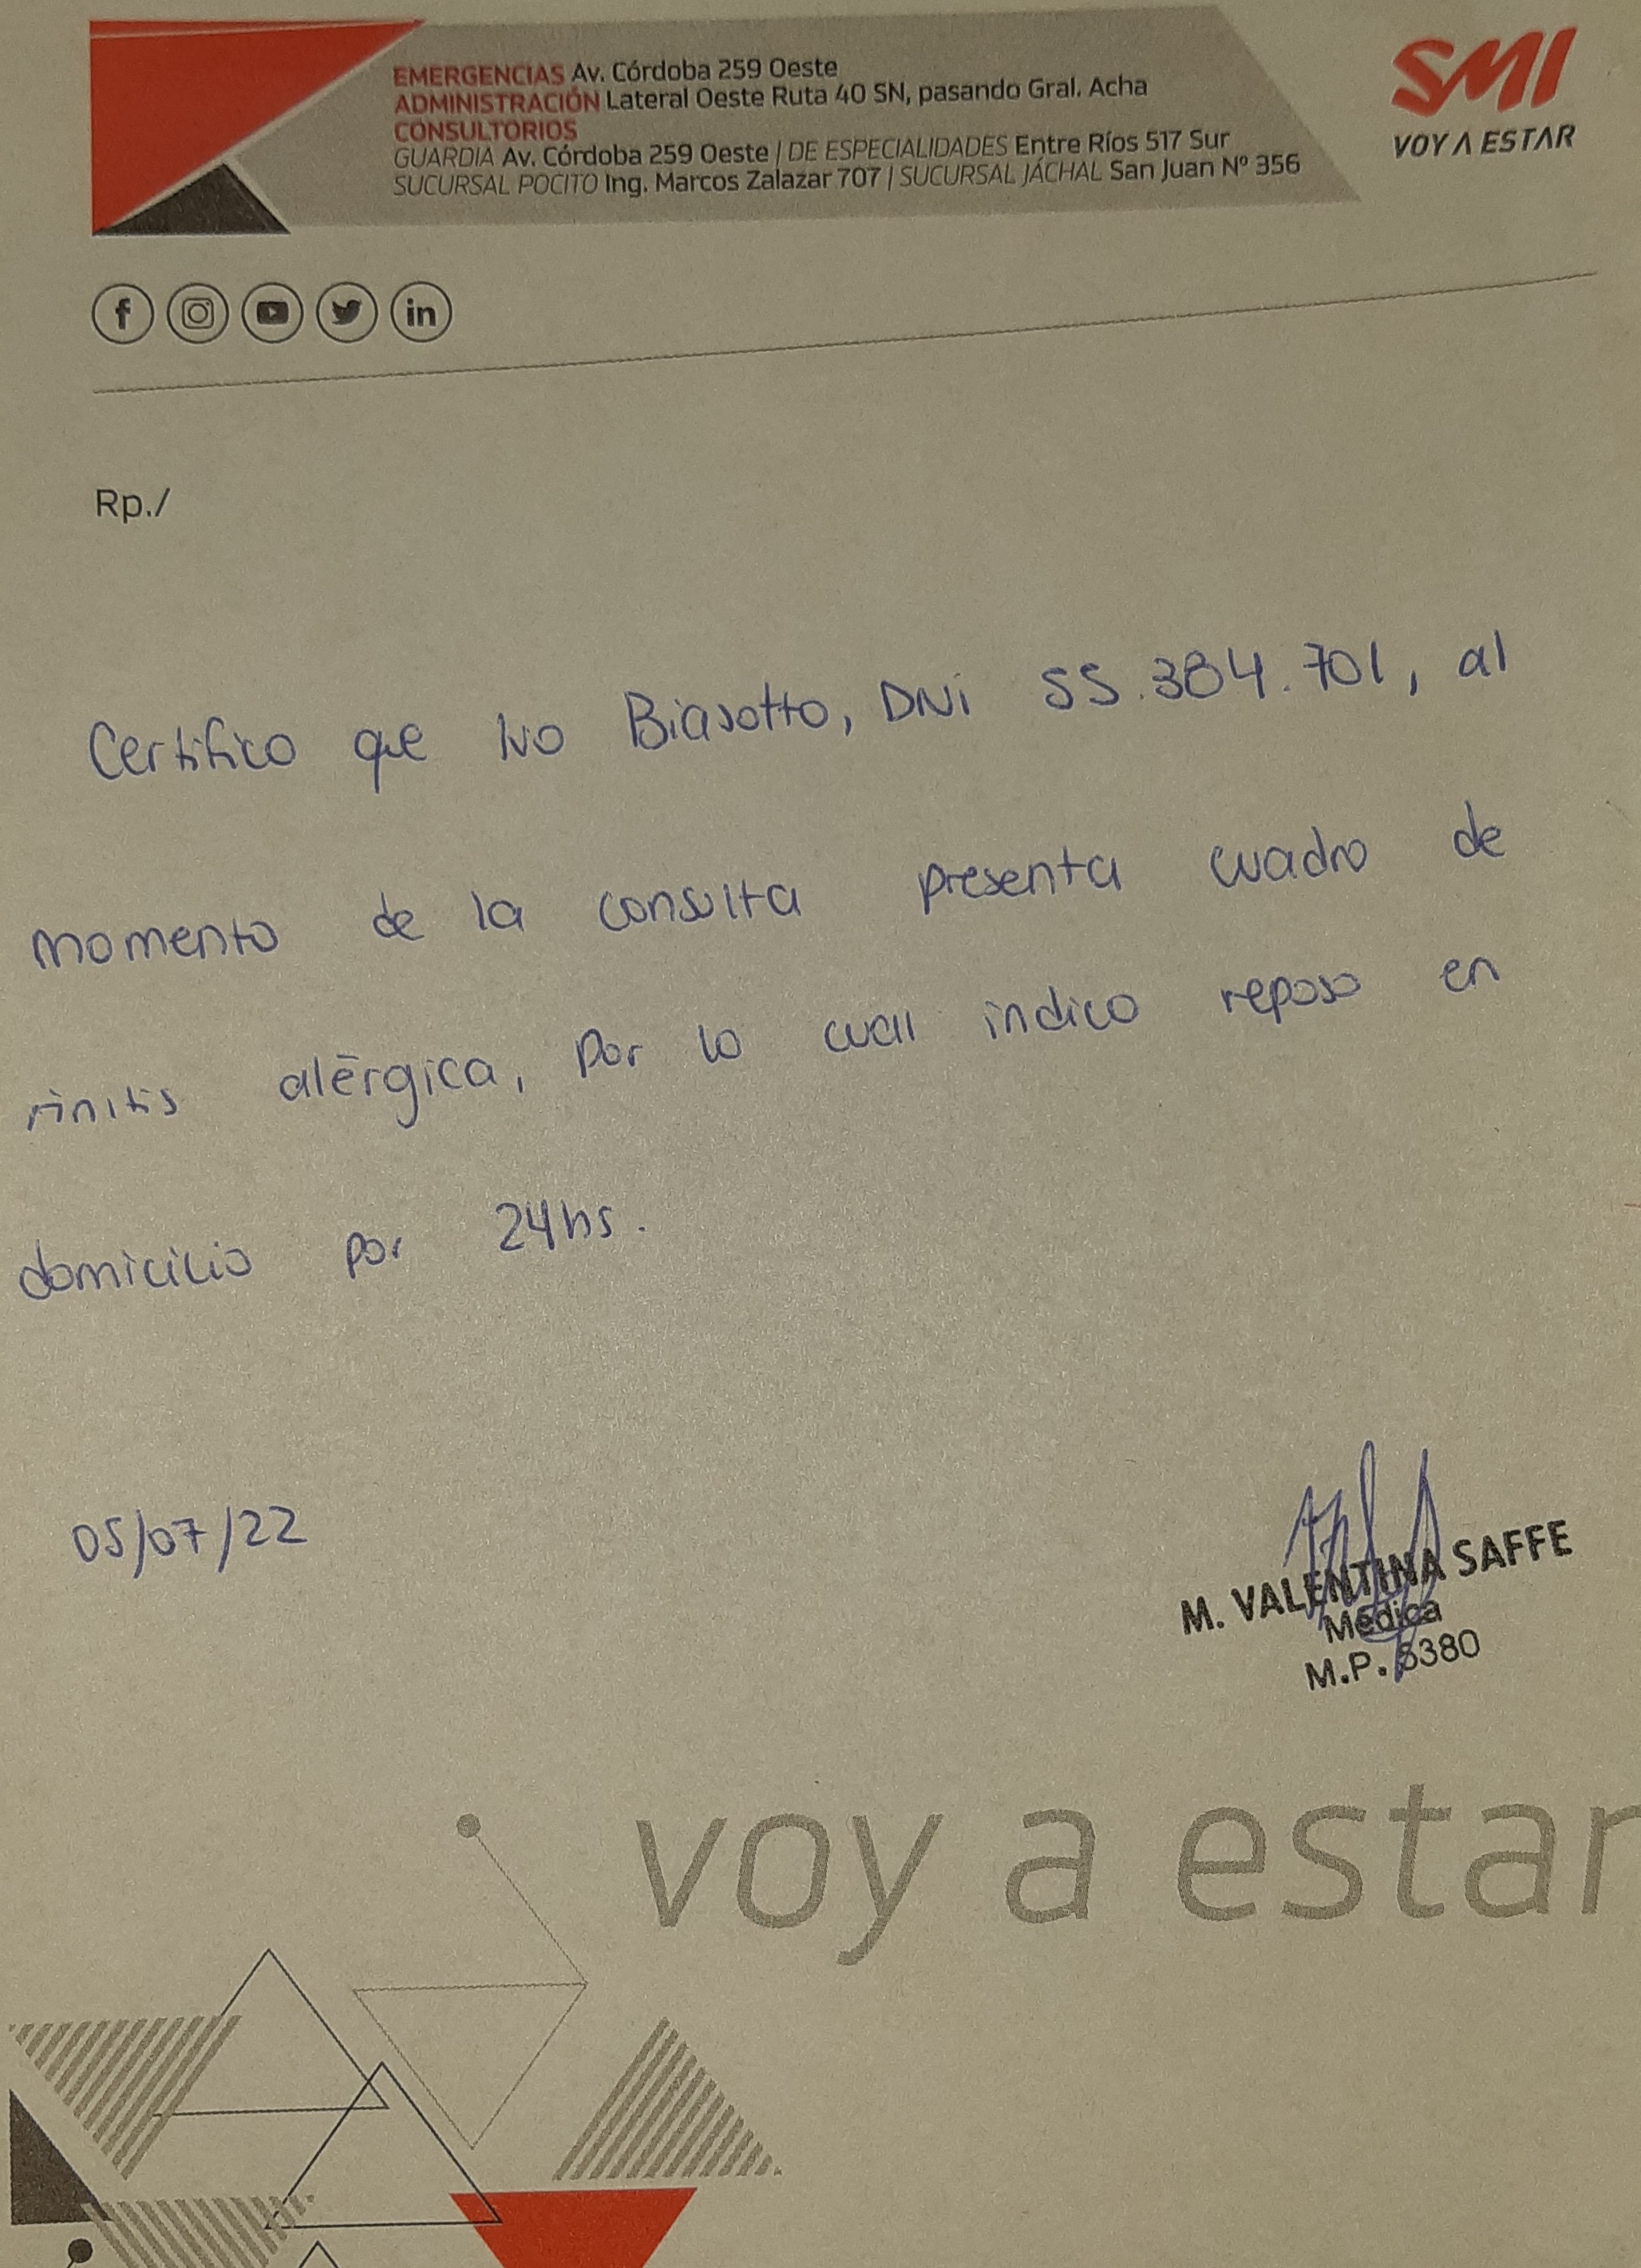 EMERGENCIAS Av. Córdoba 259 Oeste
ADMINISTRACIÓN Lateral Oeste Ruta 40 SN, pasando Gral. Acha
CONSULTORIOS
GUARDIA Av. Córdoba 259 Oeste | DE ESPECIALIDADES Entre Ríos 517 Sur
SUCURSAL POCITO Ing. Marcos Zalazar 707 | SUCURSAL JÁCHAL San Juan Nº 356
SMI
VOY A ESTAR
Rp./
Certifico que Ivo Biasotto, DNI 55.384.701, al
momento de la consulta presenta cuadro de
rinitis alérgica, por lo cual indico reposo en
domicilio por 24hs.
05/07/22
M. VALENTINA SAFFE
Médica
M.P. 5380
voy a estar